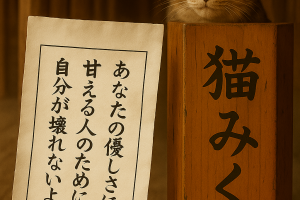 あなたの優しさに
甘える人のために
自分が壊れないよ
猫みく